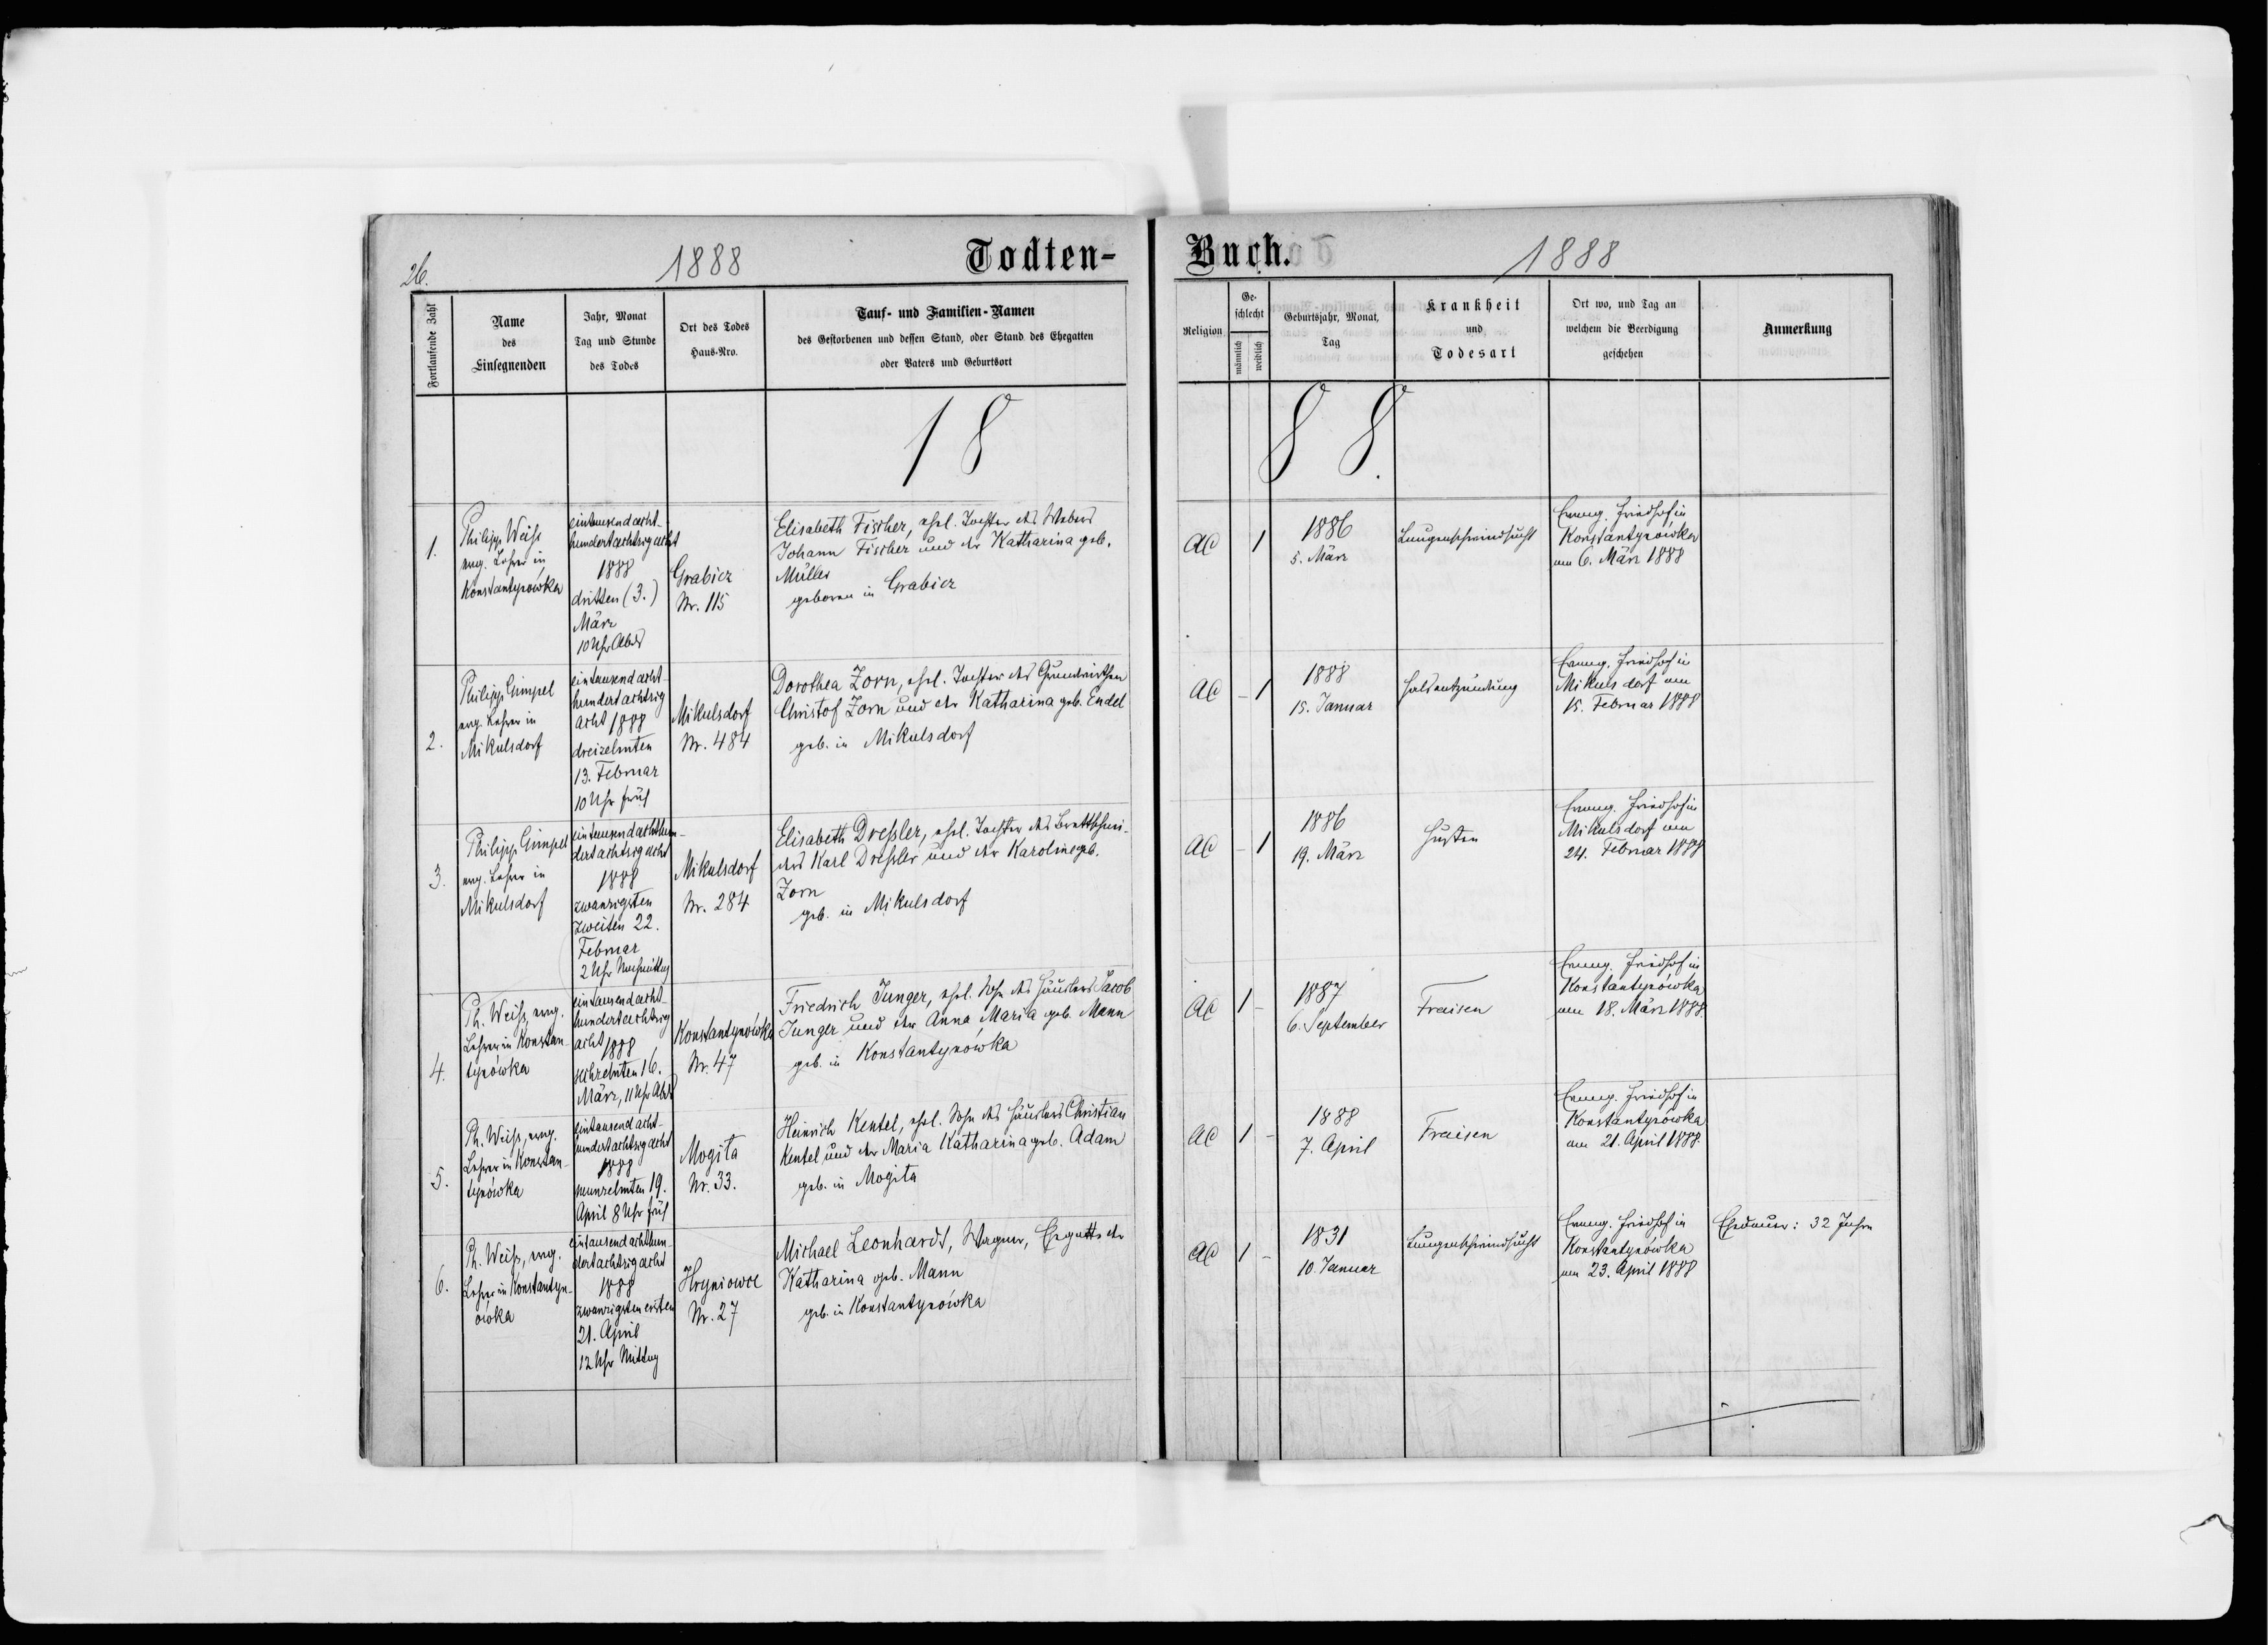 26.
1888
Todten-
Buch.
1888
Fortlaufende Zahl
Name
des
Einsegnenden
Jahr, Monat
Tag und Stunde
des Todes
Ort des Todes
Haus-Nro.
Tauf- und Familien-Namen
des Gestorbenen und dessen Stand, oder Stand des Ehegatten
oder Vaters und Geburtsort
Religion
Ge-
schlecht
männlich
weiblich
Geburtsjahr, Monat,
Tag
Krankheit
und
Todesart
Ort wo, und Tag an
welchem die Beerdigung
geschehen
Anmerkung
18
88.
1.
Philipp Weiß
evg. Lehrer in
Konstantynówka
eintausendacht-
hundertachtzigacht
1888
dritten (3.)
März
10 Uhr Abds
Grabicz
Nr. 115
Elisabeth Fischer, ehel. Tochter des Webers
Johann Fischer und der Katharina geb.
Müller
geboren in Grabicz
AC
1
1886
5. März
Lungenschwindsucht
Evang. Friedhof in
Konstantynówka
am 6. März 1888
2.
Philipp Gimpel
evg. Lehrer in
Mikulsdorf
eintausendacht-
hundertachtzig
acht 1888
dreizehnten
13. Februar
10 Uhr früh
Mikulsdorf
Nr. 484
Dorothea Zorn, ehel. Tochter des Grundwirthen
Christof Zorn und der Katharina geb. Endel
geb. in Mikulsdorf
AC
- 1
1888
15. Januar
Halsentzündung
Evang. Friedhof in
Mikulsdorf am
15. Februar 1888
3.
Philipp Gimpel
evg. Lehrer in
Mikulsdorf
eintausendachthun-
dertachtzigacht
1888
zwanzigsten
zweiten 22.
Februar
2 Uhr Nachmittag
Mikulsdorf
Nr. 284
Elisabeth Dreßler, ehel. Tochter des Brettschnei-
ders Karl Dreßler und der Karoline geb.
Zorn
geb. in Mikulsdorf
AC
- 1
1886
19. März
Husten
Evang. Friedhof in
Mikulsdorf am
24. Februar 1888
4.
Ph. Weiß, evg.
Lehrer in Konstan-
tynówka
eintausendacht-
hundertachtzig
acht 1888
sechzehnten 16.
März, 11 Uhr Abds
Konstantynówka
Nr. 47
Friedrich Junger, ehel. Sohn des Häuslers Jacob
Junger und der Anna Maria geb. Mann
geb. in Konstantynówka
AC
1 -
1887
6. September
Fraisen
Evang. Friedhof in
Konstantynówka
am 18. März 1888.
5.
Ph. Weiß, evng.
Lehrer in Konstan-
tynówka
eintausendacht-
hundertachtzigacht
1888
neunzehnten 19.
April 8 Uhr früh
Mogita
Nr. 33.
Heinrich Kentel, ehel. Sohn des Häuslers Christian
Kentel und der Maria Katharina geb. Adam
geb. in Mogita
AC
1 -
1888
7. April
Fraisen
Evang. Friedhof in
Konstantynówka
am 21. April 1888.
6.
Ph. Weiß, evg.
Lehrer in Konstantyn-
ówka
eintausendachthun-
dertachtzigacht
1888
zwanzigsten ersten
21. April
12 Uhr Mittag
Hryniowce
Nr. 27
Michael Leonhardt, Wagner, Ehegatte der
Katharina geb. Mann
geb. in Konstantynówka
AC
1 -
1831
10. Januar
Lungenschwindsucht
Evang. Friedhof in
Konstantynówka
am 23. April 1888
Ehedauer: 32 Jahre